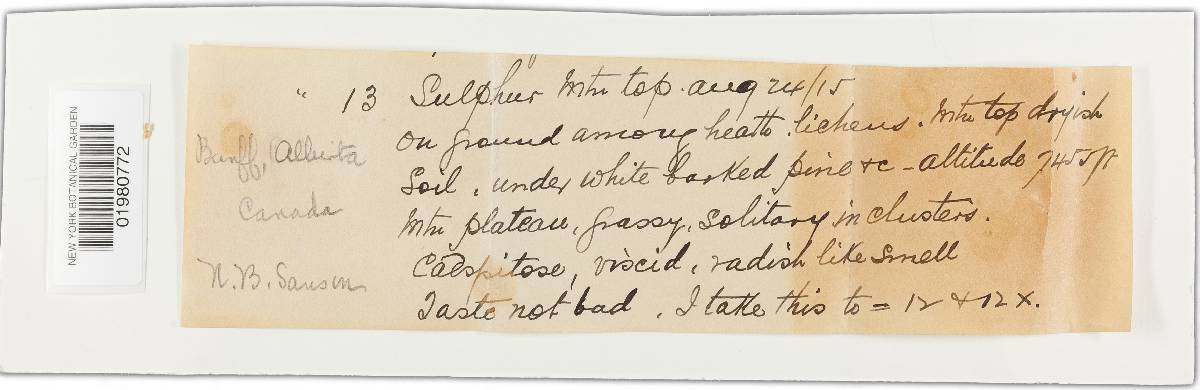 NEW YORK BOTANICAL GARDEN
01980772
Banff, Alberta
Canada
N. B. Sanson
" 13 Sulphur Mtn top. Aug 24/15
on ground among heath. lichens. Mtn top dryish
Soil, under white barked pine &c - altitude 7455 ft
Mtn plateau, grassy, solitary in clusters.
Caespitose, viscid, radish like smell
Taste not bad. I take this to = 12 & 12 x.